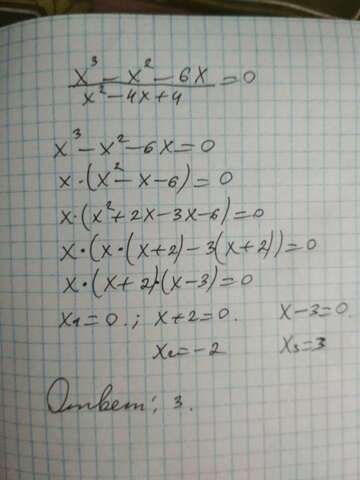 x³ − x² − 6x
x² − 4x + 4 = 0
x³ − x² − 6x = 0
x · (x² − x − 6) = 0
x · (x² + 2x − 3x − 6) = 0
x · (x · (x + 2) − 3(x + 2)) = 0
x · (x + 2) · (x − 3) = 0
x₁ = 0 ; x + 2 = 0. x − 3 = 0.
x₂ = −2 x₃ = 3
Ответ: 3.